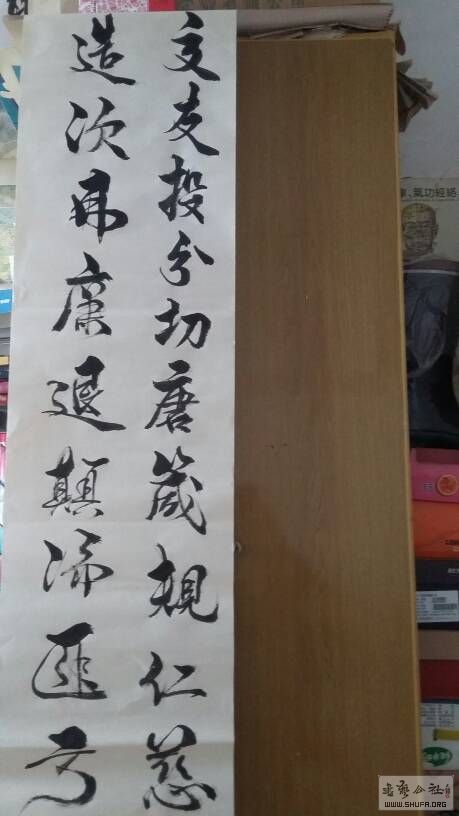 交友投分切磨箴規仁慈
造次弗廉退顛沛匪亏
氣功經絡
書藝公社
WWW.SHUFA.ORG